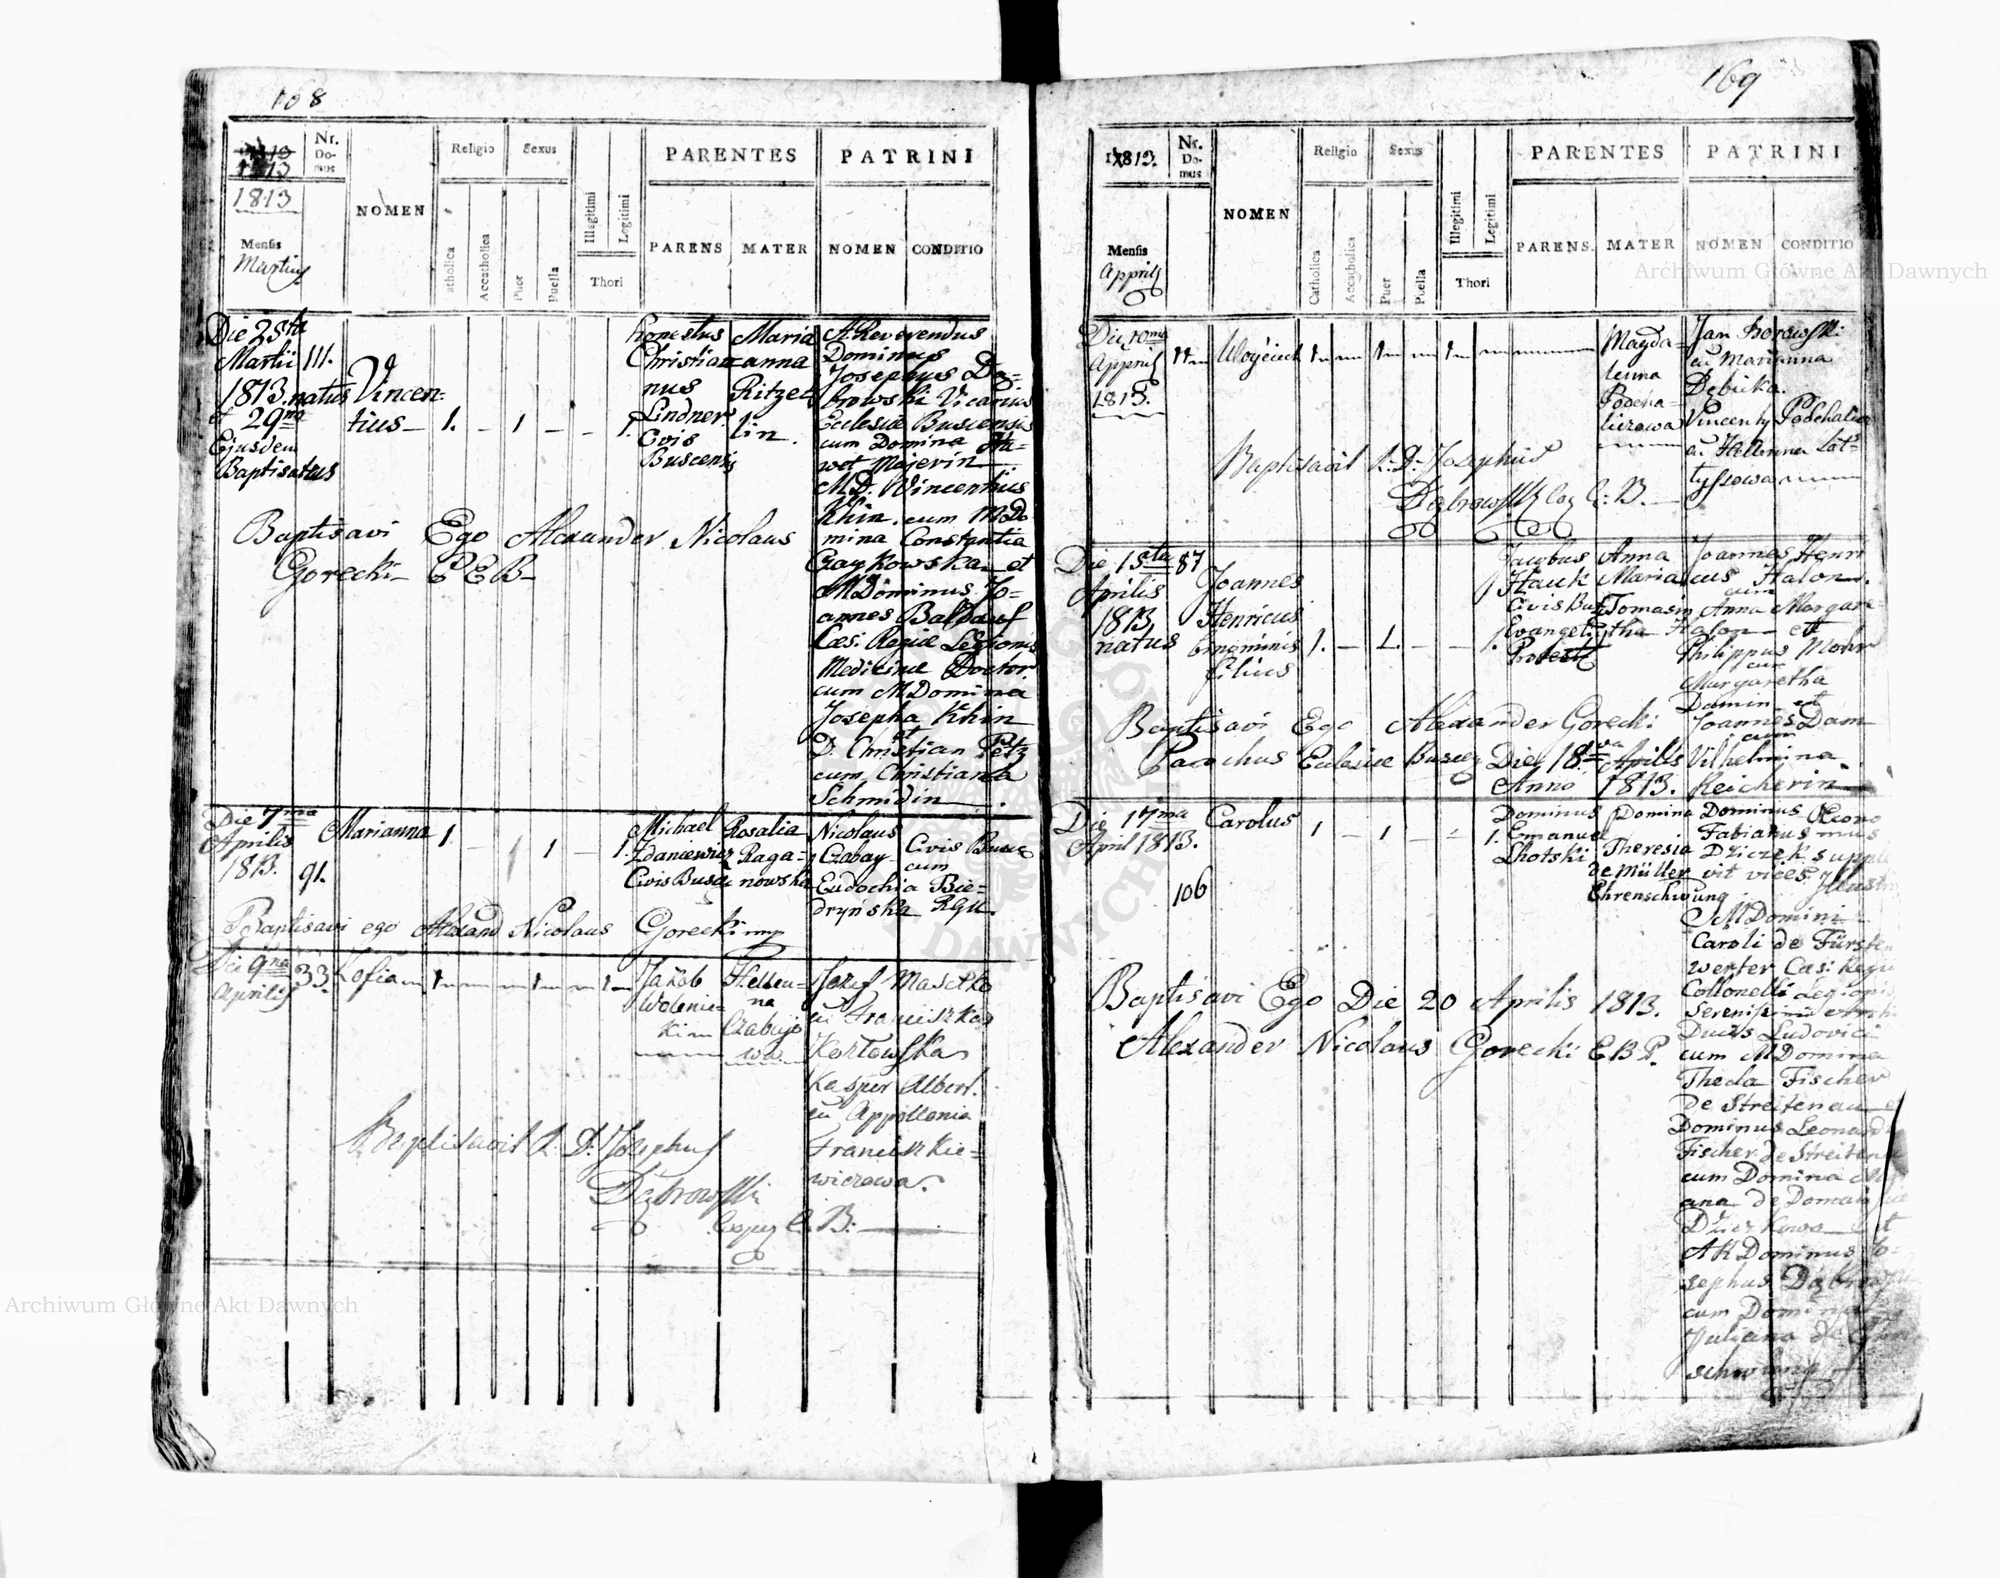 168
1813
Nr. Domus
NOMEN
Religio
Sexus
PARENTES
PATRINI
1813
Mensis
Martius
Catholica
Accatholica
Puer
Puella
Illegitimi
Legitimi
Thori
PARENS
MATER
NOMEN
CONDITIO
Die 25ta
Martii
1813. natus
et 29na
Ejusdem
Baptisatus
111.
Vincen-
tius
1. – 1 – – 1.
honestus
Christia-
nus
Lindner
Civis
Buscensis
Maria
anna
Ritzel-
lin.
A Reverendus
Dominus
Josephus Dą-
browski Vicarius
Eclesiæ Buscensis
cum Domina
Majerin
M.D. Vincentius
Khin. cum M Do-
mina Constantia
Czaykowska et
M Dominus Jo-
annes
Cæs. Regiæ Legionis
Medicinæ Doctor
cum M Domina
Josepha Khin
et
D. Christian Petz
cum Christiana
Schmidin
Baptisavi Ego Alexander Nicolaus
Gorecki P E B
Die 7ma
Aprilis
1813.
91.
Marianna
1 – 1 – 1.
Michael
Zdaniewicz
Civis Busc
Rosalia
Raga-
nowska
Nicolaus
Czabay
cum
Eudochia Bie-
dryńska
Civis Busc
Baptisavi ego Alexand Nicolaus Gorecki mp
Die 9na
Aprilis
33.
Zofia
Jakob
Wolenic-
ki
Hellen-
na
Czabajo
wa
Jozef Masełko
cū Franciszka
Kozłowska
Kasper Albert.
cū Appollonia
Franciszkie-
wiczowa.
Baptisavit A. D. Josephus
Dąbrowski
E. B.
169
1813.
Nr. Domus
NOMEN
Religio
Sexus
PARENTES
PATRINI
Mensis
Apprilis
Catholica
Accacholica
Puer
Puella
Illegitimi
Legitimi
Thori
PARENS.
MATER
NOMEN
CONDITIO
Die 10ma
Apprilis
1813.
Woyciech
Magda-
lenna
Podcha-
liczowa
Jan
cū Marianna
Dębicka.
Vincenty Podchalicz
cū Hellenna
Baptisavit A. D. Josephus
Dąbrowski E: B.
Die 15ta
Aprilis
1813
natus
87
Joannes
Henricus
binominis
filius
1. – 1. – – 1.
Jacobus
Hauk
Civis Bus
Evangeli
Anna
Maria
Tomasin
Joannes Henri
cus Halon
cum
Anna Margare-
tha Halon et
Philippus Mohr
cum
Margaretha
Damin et
Joannes Dam
cum
Vilhelmina
Reicherin
Baptisavi Ego Alexander Gorecki
Parochus Eclesiæ Buscen Die 18va Aprilis
Anno 1813.
Die 17ma
April 1813.
106
Carolus
1 – 1 – – 1.
Dominus
Emanuel
Lhotski
Domina
Theresia
de Müller
Ehrenschwung
Dominus Œcono
Fabianus mus
Dziczek supple
vit vices Illustri
S M Domini
Caroli de Fürsten
werter Cæs: Regiæ
Collonelli Legionis
Serenissimi Archi
Ducis Ludovici
cum M Domina
Thecla Fischer
de Streitenau et
Dominus Leonard
Fischer de Streitena
cum Domina Mari
ana de
et
A R Dominus Jo-
sephus Dąbrowski
cum Domina
Juliana de Ehren
schwung
Baptisavi Ego Die 20 Aprilis 1813.
Alexander Nicolaus Gorecki E B P.
Archiwum Główne Akt Dawnych
Archiwum Główne Akt Dawnych